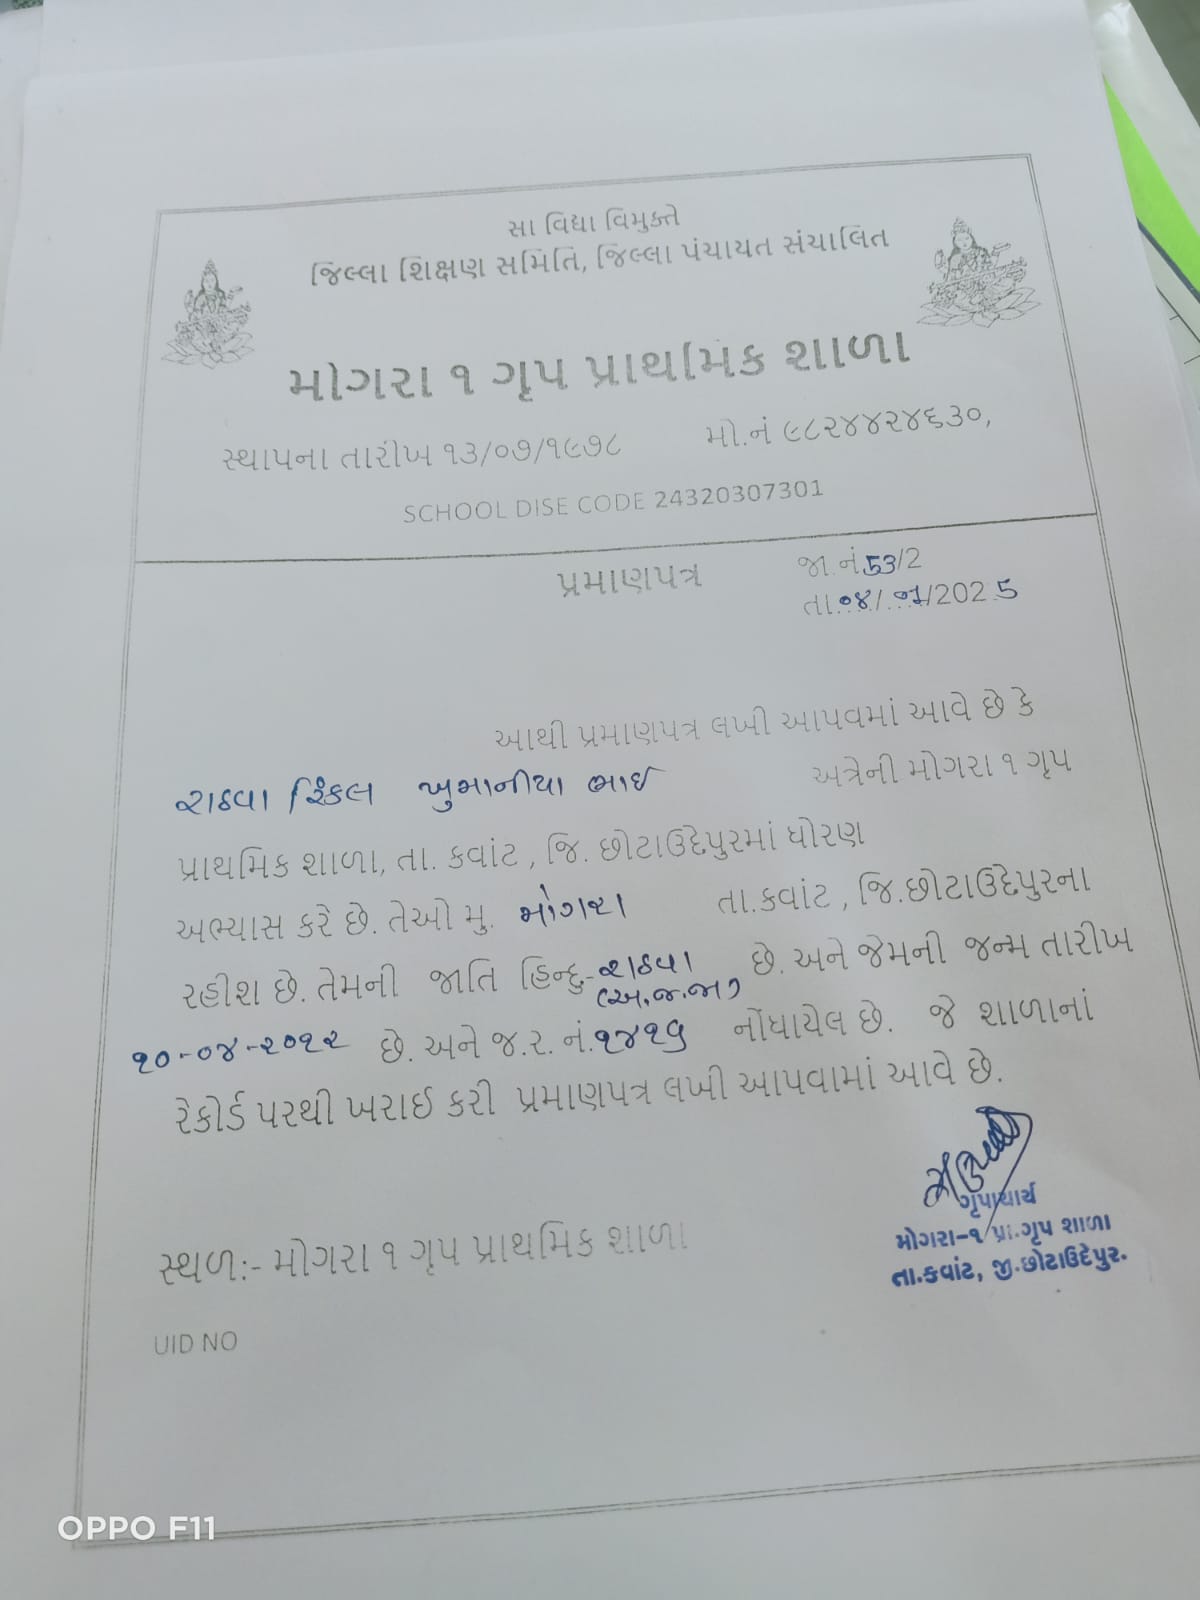 સા વિદ્યા વિમુક્તે
જિલ્લા શિક્ષણ સમિતિ, જિલ્લા પંચાયત સંચાલિત
મોગરા ૧ ગૃપ પ્રાથમિક શાળા
સ્થાપના તારીખ ૧૩/૦૭/૧૯૭૮ મો.નં ૯૮૨૪૪૨૪૬૩૦,
SCHOOL DISE CODE 24320307301
પ્રમાણપત્ર જા.નં.53/2
તા.૦૪/.૦૧/2025
આથી પ્રમાણપત્ર લખી આપવમાં આવે છે કે
રાઠવા રિંકલ ખુમાનીયા ભાઇ અત્રેની મોગરા ૧ ગૃપ
પ્રાથમિક શાળા, તા. કવાંટ , જિ. છોટાઉદેપુરમાં ધોરણ
અભ્યાસ કરે છે. તેઓ મુ. મોગરા તા.કવાંટ , જિ.છોટાઉદેપુરના
રહીશ છે. તેમની જાતિ હિન્દુ-રાઠવા છે. અને જેમની જન્મ તારીખ
(અ.જ.જા)
૧૦-૦૪-૨૦૧૨ છે. અને જ.ર. નં. નોંધાયેલ છે. જે શાળાનાં
રેકોર્ડ પરથી ખરાઈ કરી પ્રમાણપત્ર લખી આપવામાં આવે છે.
ગૃપાચાર્ય
મોગરા-૧ પ્રા.ગૃપ શાળા
તા.કવાંટ, જી.છોટાઉદેપુર.
સ્થળ:- મોગરા ૧ ગૃપ પ્રાથમિક શાળા
UID NO
OPPO F11